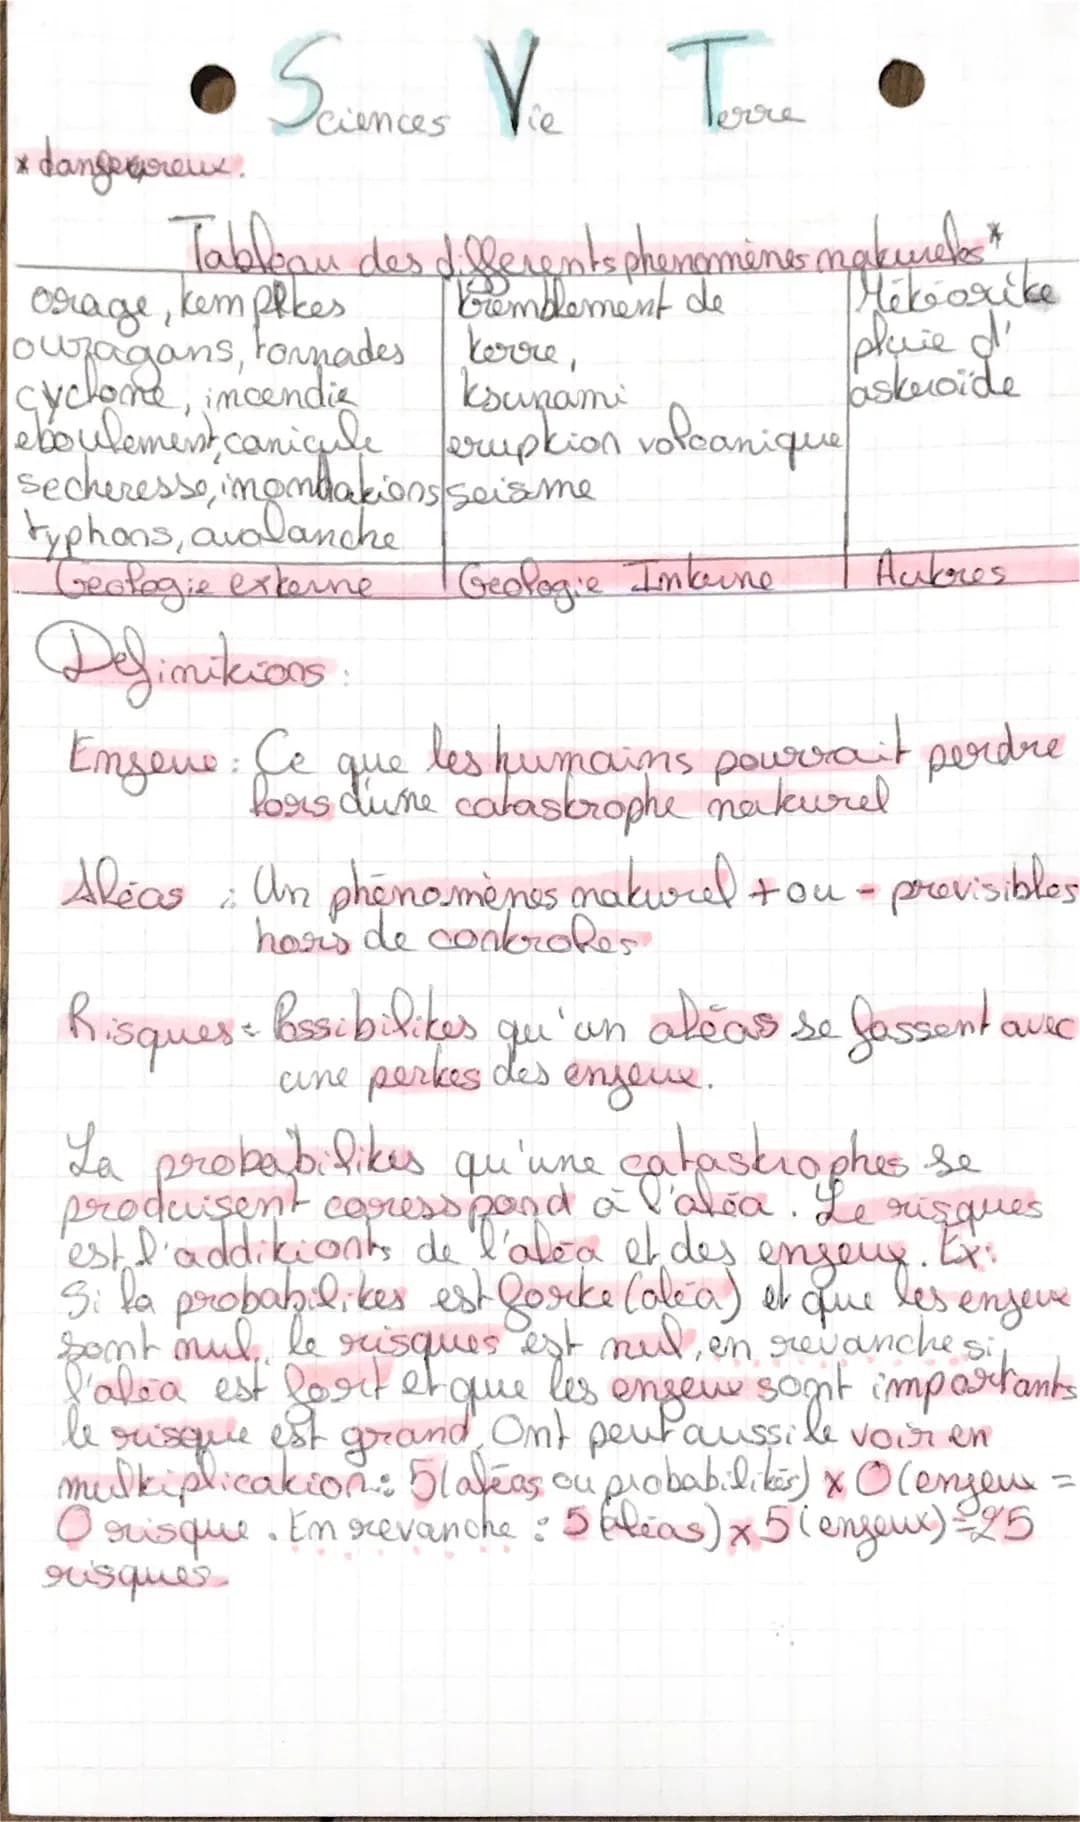 Sciences Vie Terre
* dangereux.
Tableau des differents phenomènes naturels*
orage, tempêtes
ouragans, tornades
cyclone, incendie
eboulement, canicule
secheresse, inondations
typhons, avalanche
Geologie externe
tremblement de
terre,
tsunami
eruption volcanique
seisme
Geologie Interne
Météorite
pluie d'
asteroïde
Autres
Definitions :
Enjeue : Ce que les humains pourrait perdre
lors d'une catastrophe naturel
Aléas : Un phénomènes naturel + ou - previsibles
hors de controles
Risques : Possibilites qu'un aléas se fassent avec
une pertes des enjeux.
La probabilites qu'une catastrophes se
produisent corresspond à l'aléa. Le risques
est l'additionts de l'aléa et des enjeux. Ex:
Si la probabilites est forte (aléa) et que les enjeux
sont nul, le risques est nul, en revanche si
l'aléa est fort et que les enjeux sont importants
le risque est grand. Ont peut aussi le voir en
multiplication : 5 (aléas ou probabilités) x 0 (enjeux =
0 risque. En revanche : 5 (aléas) x 5 (enjeux) = 25
risques.